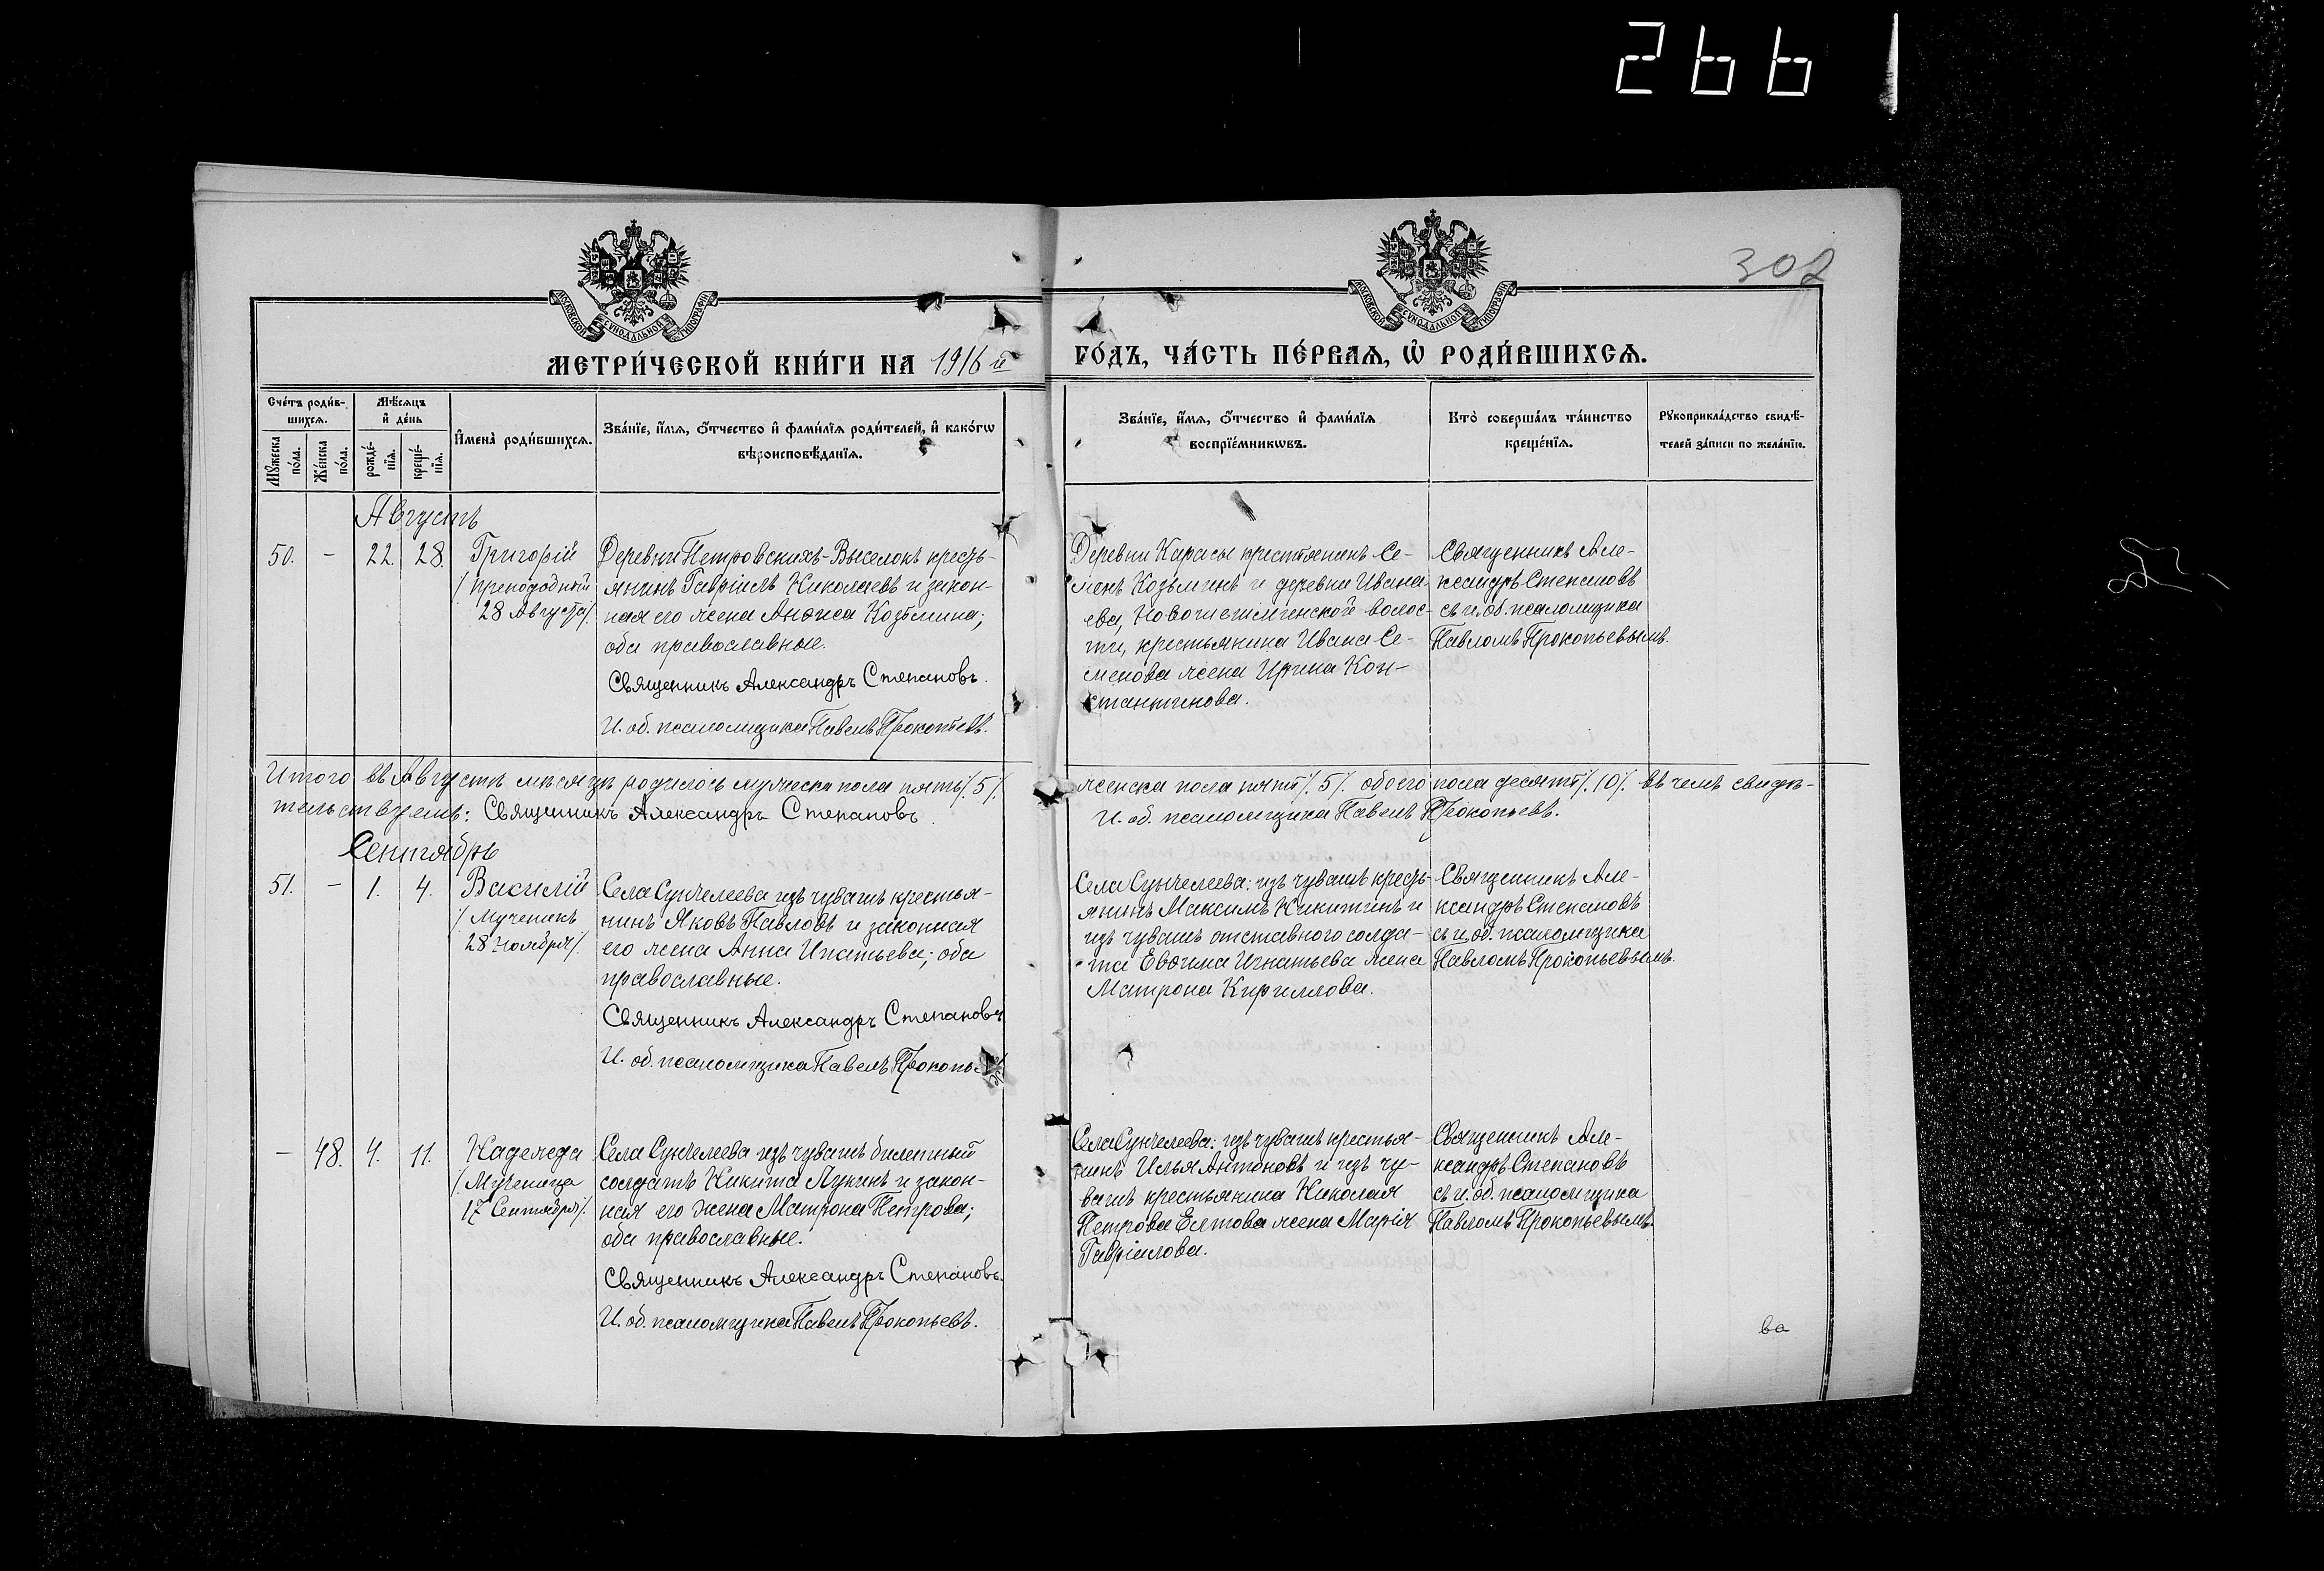 2661
302
МОСКОВСКОЙ СѴНОДАЛЬНОЙ ТИПОГРАФІИ
МОСКОВСКОЙ СѴНОДАЛЬНОЙ ТИПОГРАФІИ
МЕТРИ́ЧЕСКОЙ КНИ́ГИ НА 1916 й ГО́ДЪ, ЧА́СТЬ ПЕ́РВАЯ, Ѡ҆ РОДИ́ВШИХСЯ.
Сче́тъ роди́в-
шихся.
Мꙋ́жеска
по́ла.
Же́нска
по́ла.
Мѣ́сяцъ
и҆ де́нь
рожде́-
нїя.
креще́-
нїя.
И҆мена̀ роди́вшихся.
Зва́нїе, и҆́мя, ѻ҆́тчество и҆ фами́лїя роди́телей, и҆ како́гѡ
вѣроисповѣ́данїя.
Зва́нїе, и҆́мя, ѻ҆́тчество и҆ фами́лїя
воспрїе́мникѡвъ.
Кто̀ соверша́лъ та́инство
креще́нїя.
Рꙋкоприкла́дство свидѣ́-
телей за́писи по жела́нїю.
Августъ
50. - 22. 28.
Григорій
/преподобный
28 Августа/.
Деревни Петровскихъ-Выселокъ кресть-
янинъ Гавріилъ Николаевъ и закон-
ная его жена Анѳиса Козьмина;
оба православные.
Священникъ Александръ Степановъ.
И. об. псаломщика Павелъ Прокопьевъ.
Деревни Карасы крестьянинъ Се-
менъ Козьминъ и деревни Ивана-
ева, Новошешминской волос-
ти, крестьянина Ивана Се-
менова жена Ирина Кон-
стантинова.
Священникъ Але-
ксандръ Степановъ
съ и. об. псаломщика
Павломъ Прокопьевымъ.
Итого въ Августѣ мѣсяцѣ родилось мужеска пола пять/.5/. женска пола пять/.5/. обоего пола десять/.10/. въ чемъ свидѣ-
тельствуемъ: Священникъ Александръ Степановъ. И. об. псаломщика Павелъ Прокопьевъ.
Сентябрь
51. - 1. 4.
Василій
/Мученикъ
28 Ноября/.
Села Сунчелеева изъ чувашъ крестья-
нинъ Яковъ Павловъ и законная
его жена Анна Ипатьева; оба
православные.
Священникъ Александръ Степановъ
И. об. псаломщика Павелъ Прокопьевъ
Села Сунчелеева: изъ чувашъ кресть-
янинъ Максимъ Никитинъ и
изъ чувашъ отставного солда-
та Евѳима Игнатьева жена
Матрона Кириллова.
Священникъ Але-
ксандръ Степановъ
съ и. об. псаломщика
Павломъ Прокопьевымъ.
- 48. 4. 11.
Надежда
/Мученица
17 Сентября/.
Села Сунчелеева изъ чувашъ билетный
солдатъ Никита Лукинъ и закон-
ная его жена Матрона Петрова;
оба православные.
Священникъ Александръ Степановъ.
И. об. псаломщика Павелъ Прокопьевъ.
Села Сунчелеева: изъ чувашъ крестья-
нинъ Илья Антоновъ и изъ чу-
вашъ крестьянина Николая
Петрова Елтова жена Марія
Гавріилова.
Священникъ Але-
ксандръ Степановъ
съ и. об. псаломщика
Павломъ Прокопьевымъ.
ва